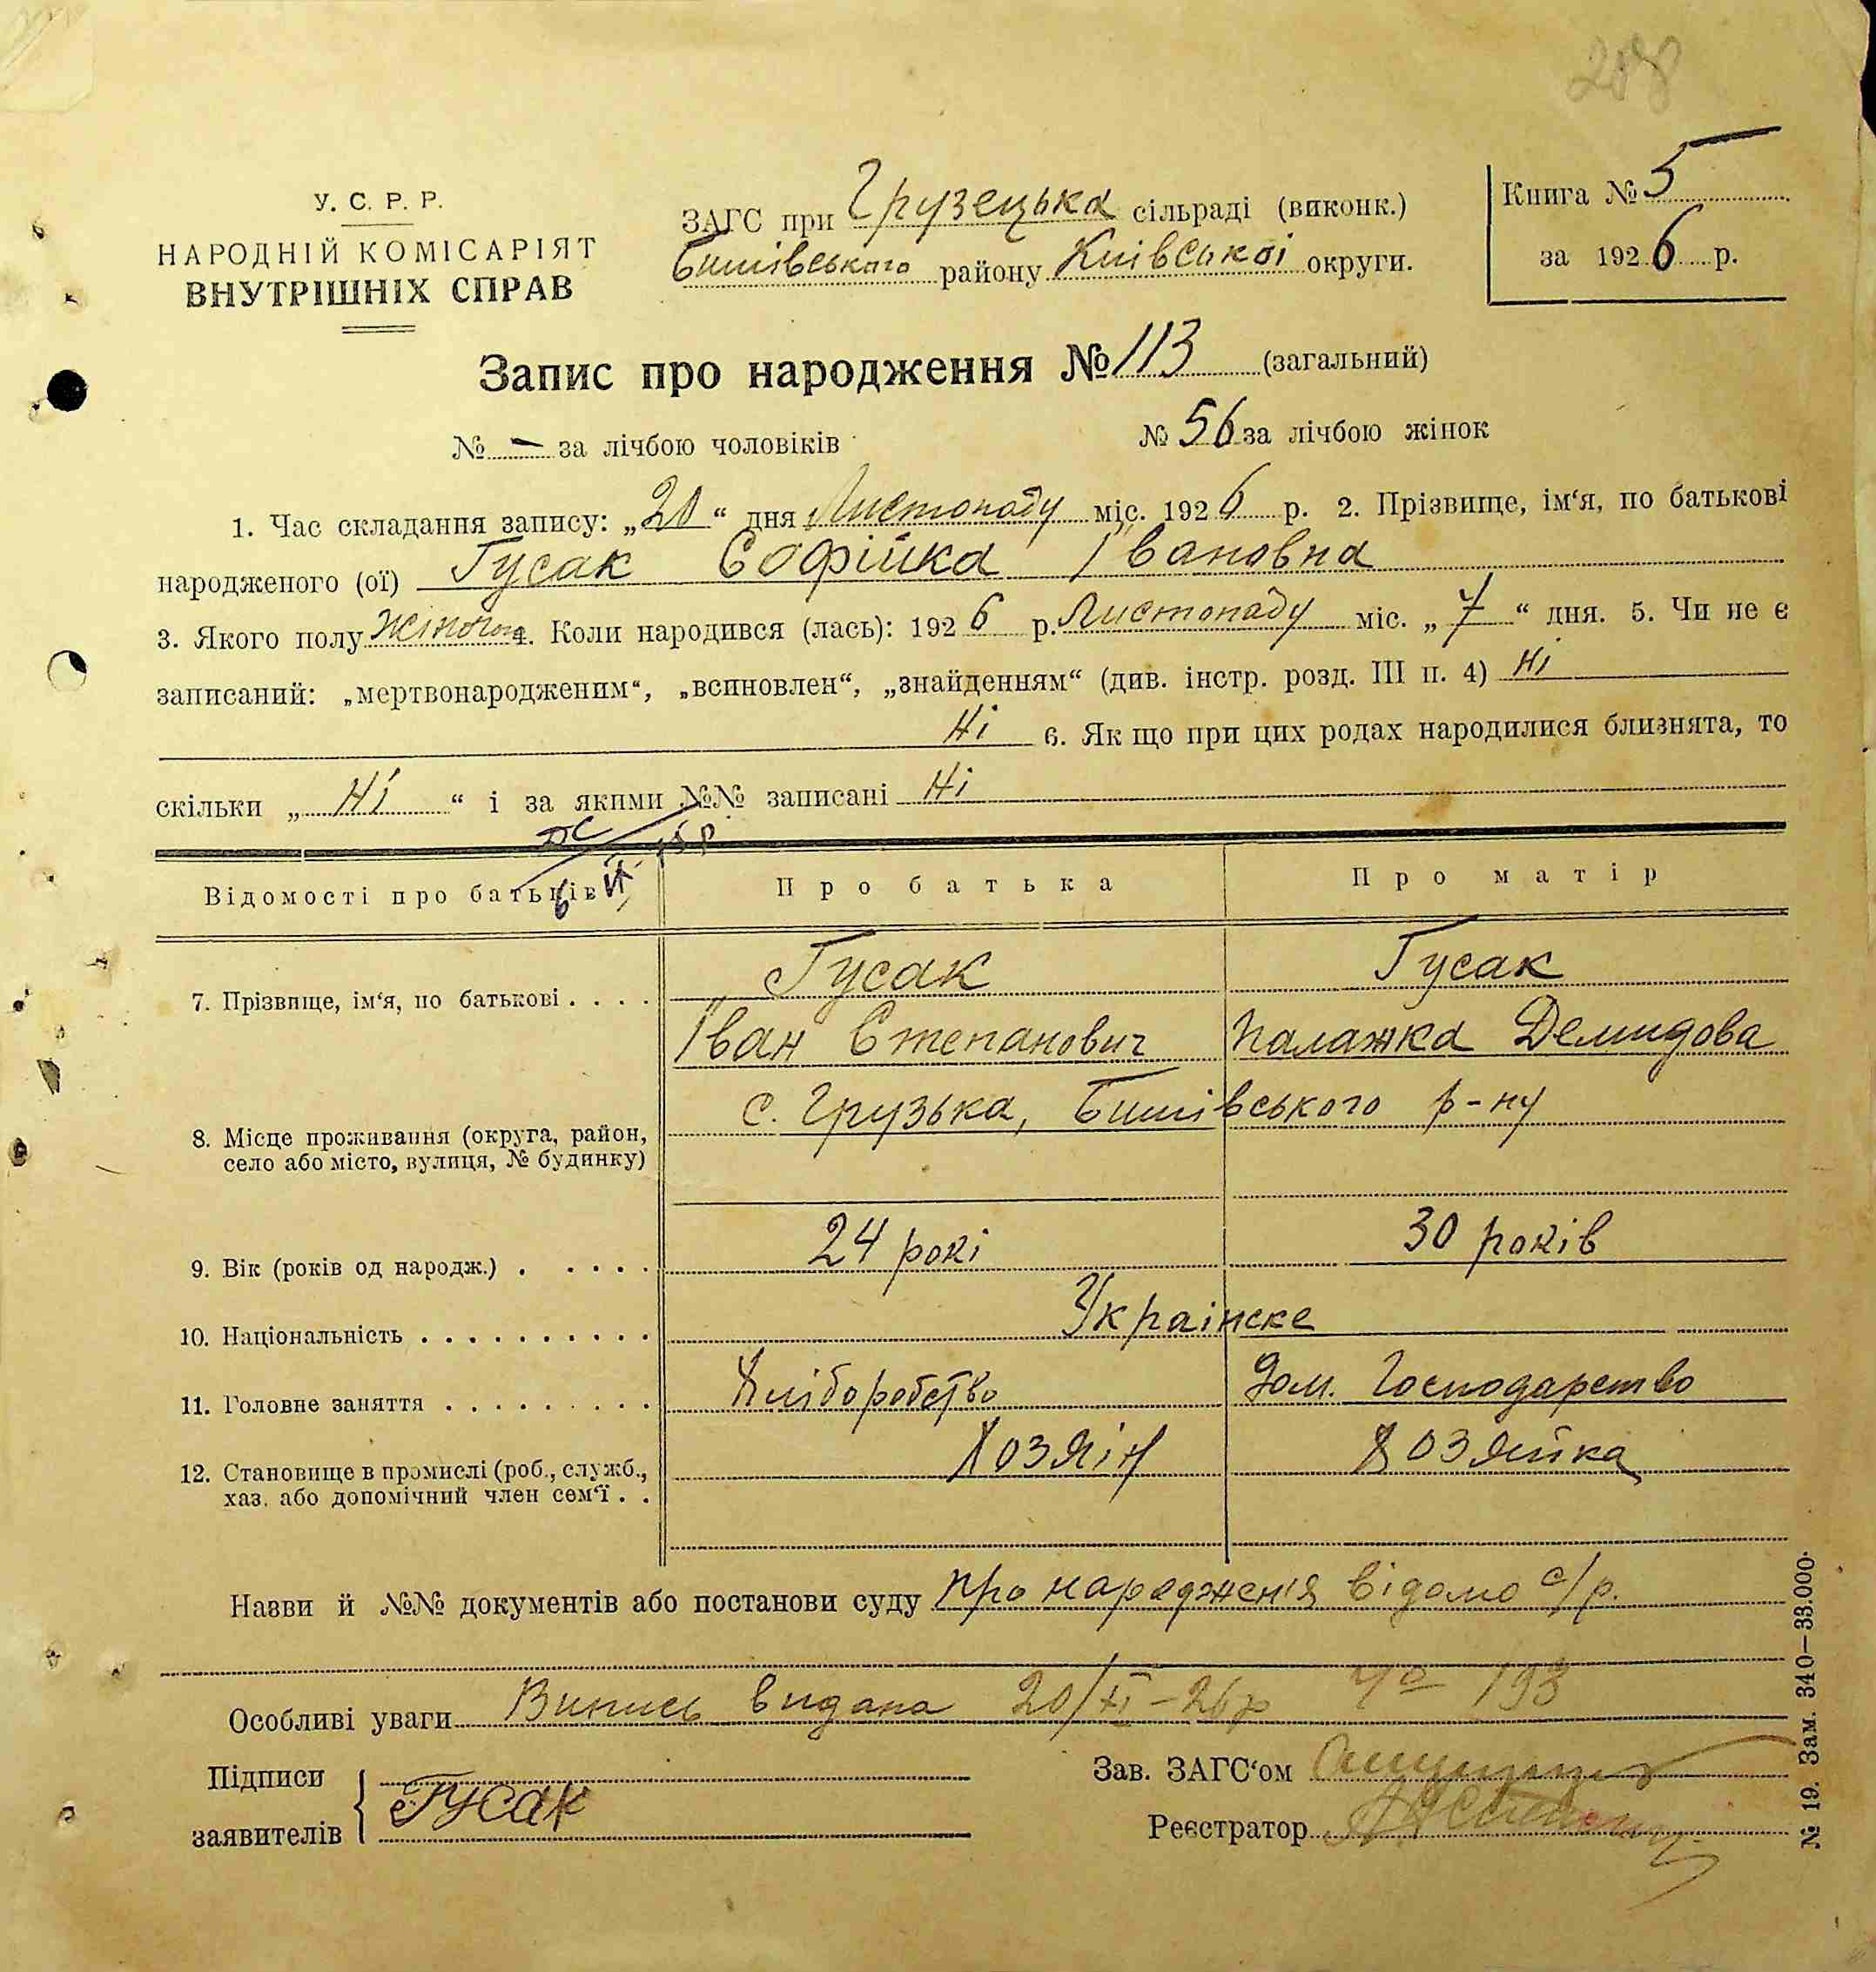 208
У. С. Р. Р.
НАРОДНІЙ КОМІСАРІЯТ
ВНУТРІШНІХ СПРАВ
ЗАГС при Грузецька сільраді (виконк.)
Бишівського району Київської округи.
Книга № 5
за 1926 р.
Запис про народження № 113 (загальний)
№ — за лічбою чоловіків № 56 за лічбою жінок
1. Час складання запису: „20“ дня Листопаду міс. 1926 р. 2. Прізвище, ім‘я, по батькові
народженого (ої) Гусак Софійка Івановна
3. Якого полу жіночого 4. Коли народився (лась): 1926 р. Листопаду міс. „7“ дня. 5. Чи не є
записаний: „мертвонародженим“, „всиновлен“, „знайденням“ (див. інстр. розд. III п. 4) Ні
Ні 6. Як що при цих родах народилися близнята, то
скільки „Ні“ і за якими №№ записані Ні
Відомості про батьків Про батька Про матір
7. Прізвище, ім‘я, по батькові . . . . Гусак Гусак
Іван Степанович Палажка Демидова
с. Грузька, Бишівського р-ну
8. Місце проживання (округа, район,
село або місто, вулиця, № будинку)
9. Вік (років од народж.) . . . . . 24 рокі 30 років
10. Національність . . . . . . . . . . Українске
11. Головне заняття . . . . . . . . . Хліборобство Дом. Господарство
12. Становище в промислі (роб., служб., Хозяін Хозяйка
хаз. або допомічний член сем‘ї . .
Назви й №№ документів або постанови суду про народженія відомо с/р.
Особливі уваги Випись видана 20/XI-26р 193
Підписи
заявителів Гусак
Зав. ЗАГС‘ом
Реєстратор
№ 19. Зам. 340—33.000.